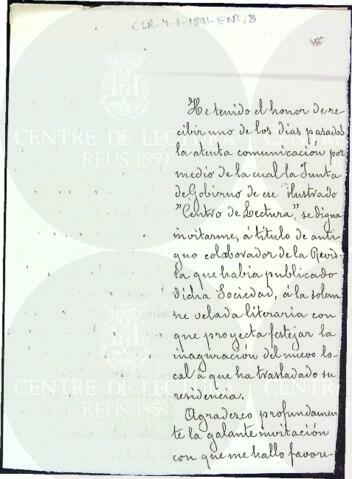 CLR-4-1-1891-ENT, 8
He tenido el honor de re-
cibir uno de los dias pasados
la atenta comunicación por
medio de la cual la Junta
de Gobierno de ese ilustrado
"Centro de Lectura", se digna
invitarme, á título de anti-
guo colaborador de la Revis-
ta que habia publicado
dicha Sociedad, á la solem-
ne velada literaria con
que proyecta festejar la
inaguración del nuevo lo-
cal á que ha trasladado su
residencia.
Agradezco profundamen-
te la galante invitación
con que me hallo favore-
CENTRE DE LECTURA
REUS 1859
CENTRE DE LECTURA
REUS 1859